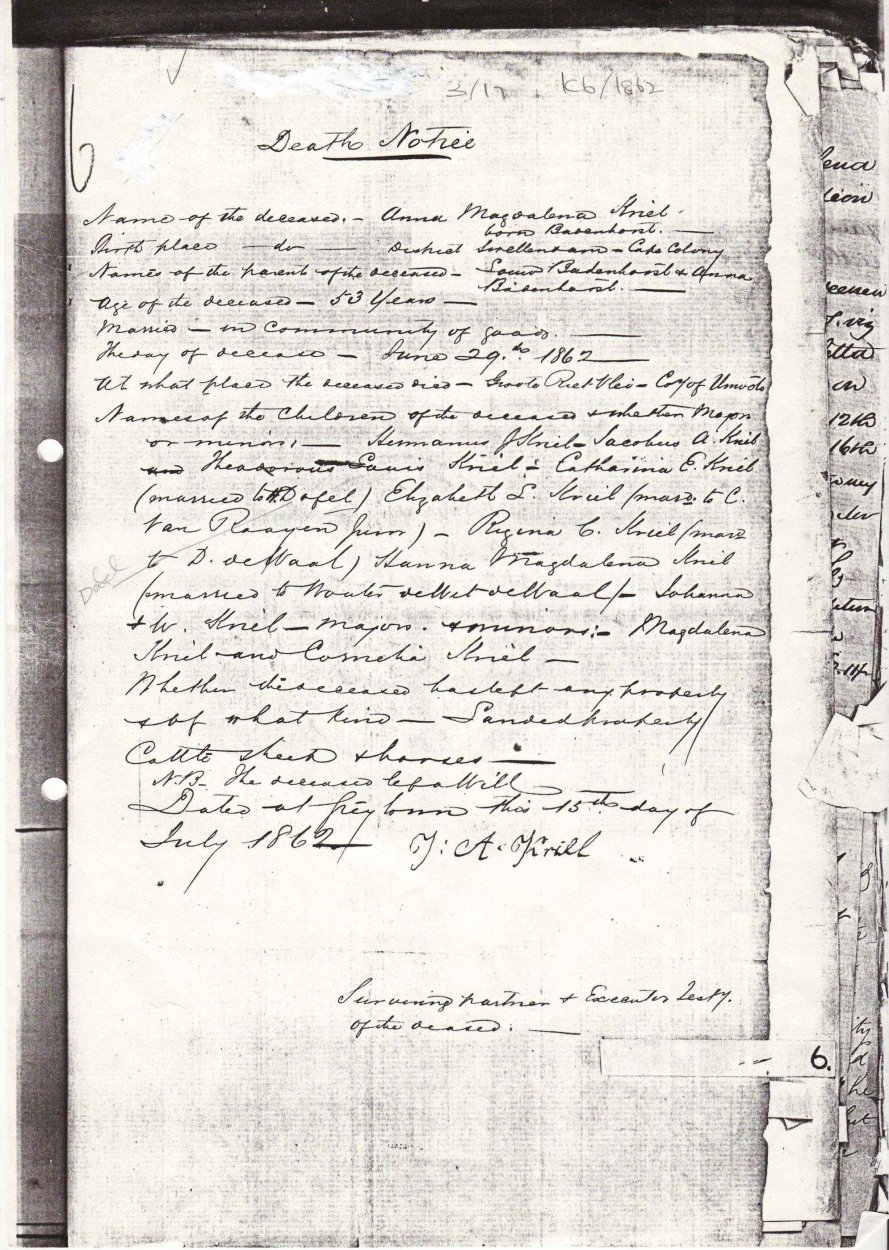 3/17 K6/1862
6
Death Notice
Name of the deceased. - Anna Magdalena Kriel.
born Badenhorst. -
Birth place - do - District Swellendam - Cape Colony
Names of the parents of the deceased - Louis Badenhorst & Anna
Badenhorst. -
Age of the deceased - 53 Years -
Married - in Community of goods. -
The day of decease - June 29.th 1862 -
At what place the deceased died - Groote Riet Vlei - Coy of Umvoti
Names of the Children of the deceased & whether Major
or minor: - Hermanus J Kriel - Jacobus A. Kriel
and Theodorous Louis Kriel - Catharina E. Kriel
(married to H. Dafel) Elizabeth L. Kriel (mard. to C.
Van Rooyen Junr) - Regina C. Kriel (mard
to D. deWaal) Hanna Magdalena Kriel
Dafel
(married to Wouter deWet deWaal) - Johanna
& W. Kriel - majors. & minors: - Magdalena
Kriel and Cornelia Kriel -
Whether the deceased has left any property
& of what kind - Landed property
Cattle sheep & horses -
N.B. The deceased left a Will
Dated at Greytown this 15th day of
July 1862 T: A. Krill
Surviving partner & Executor Testy.
of the deased. -
6.